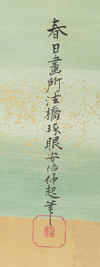 春日畫所法橋琢眼安信仲起筆